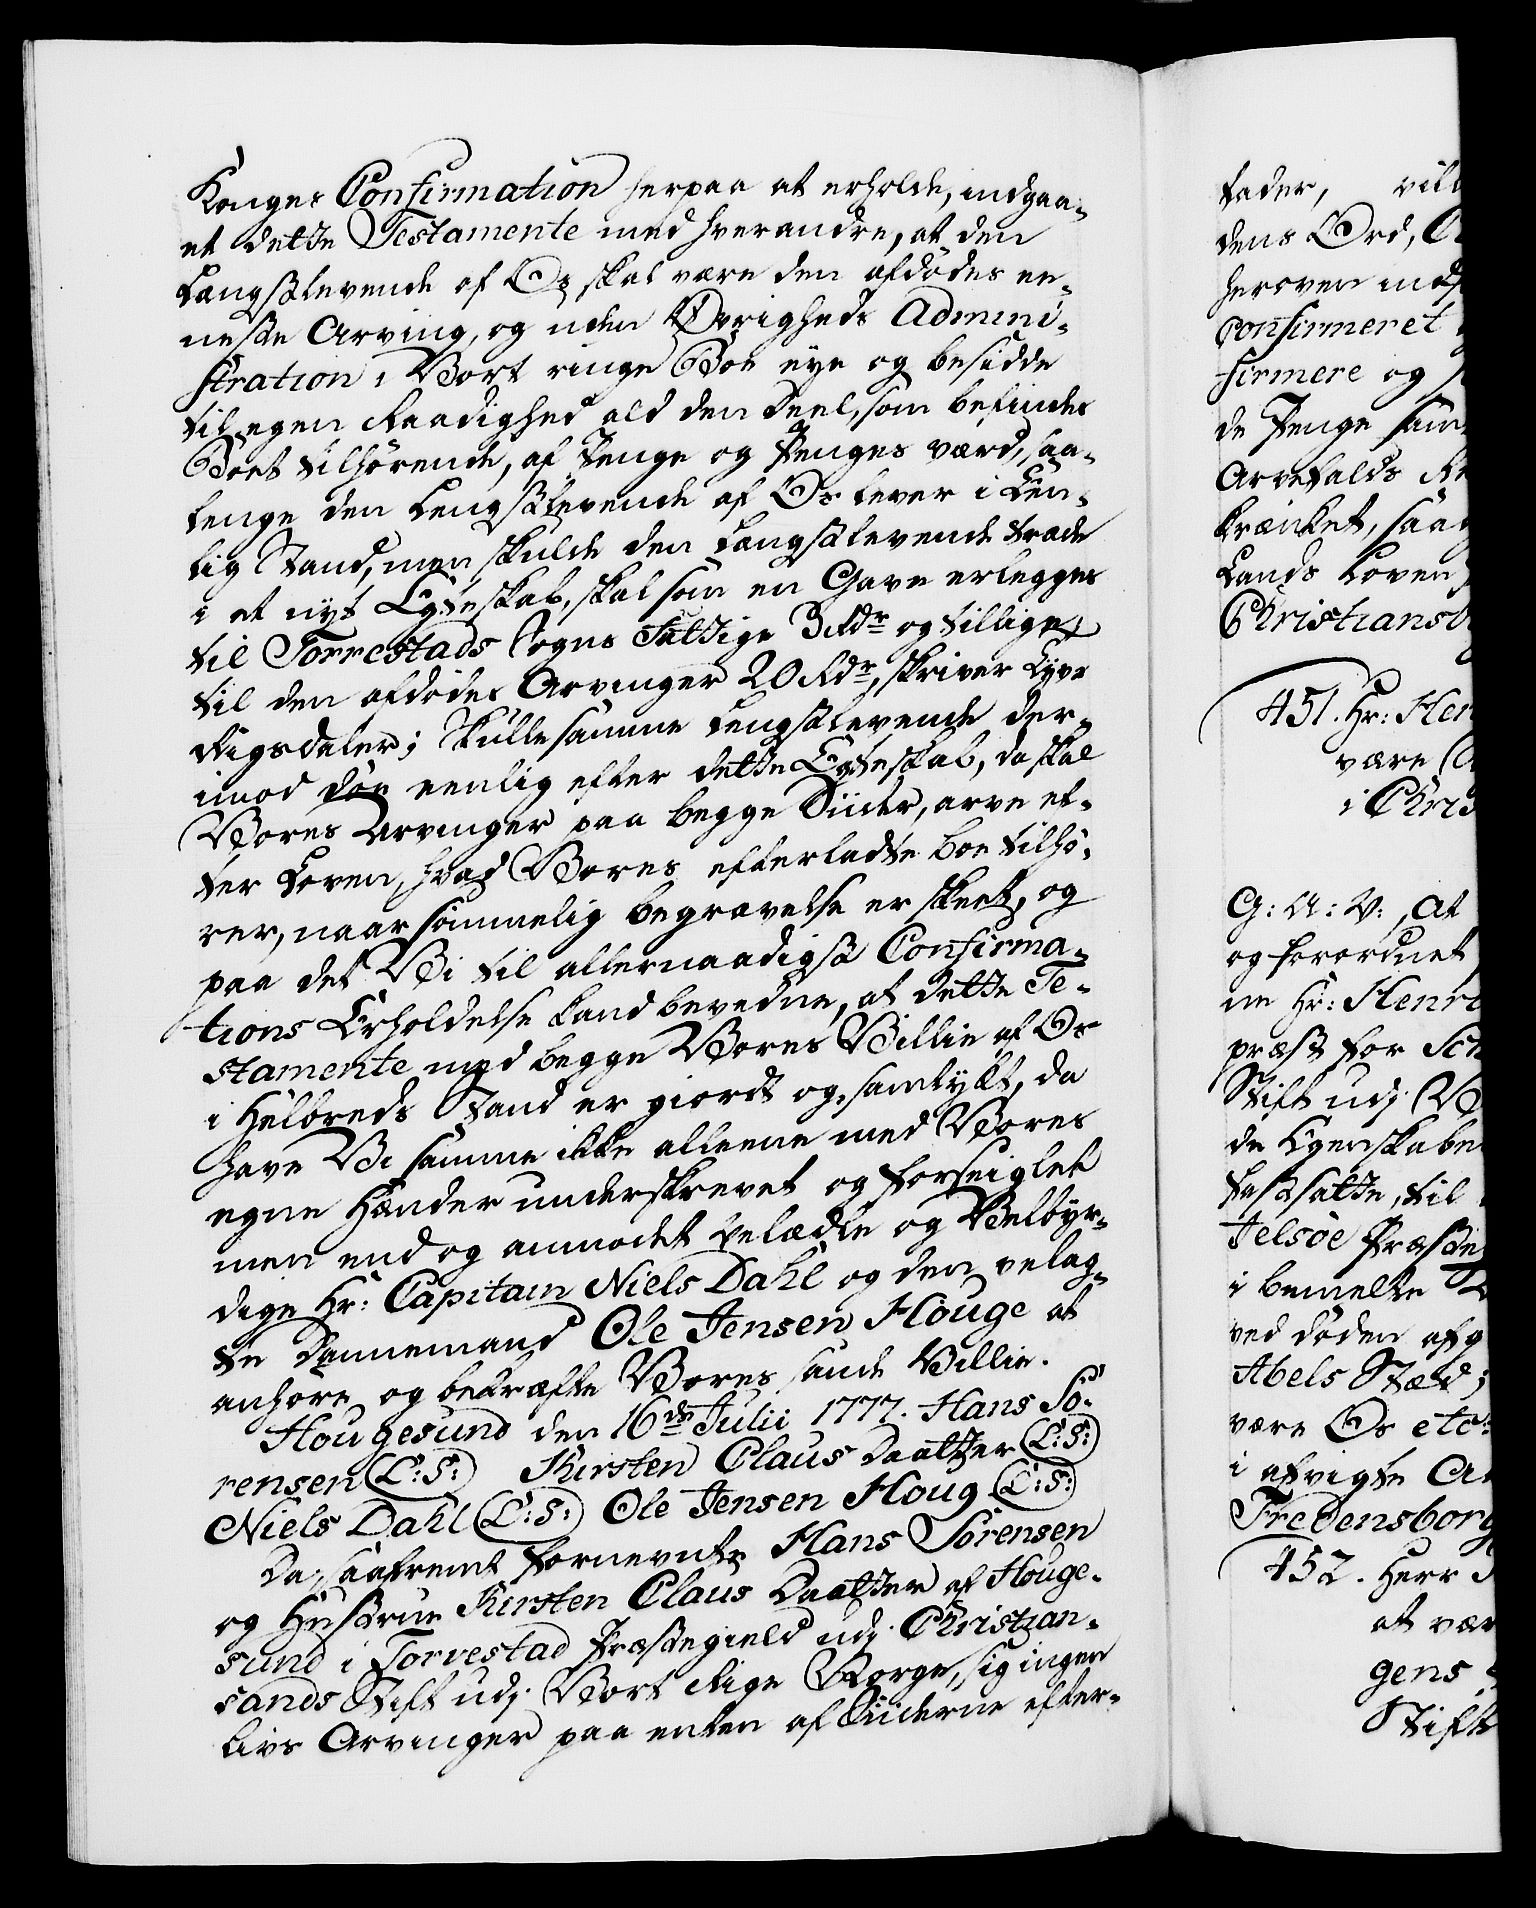 Konges Confirmation herpaa at erholde, indgaa-
et dette Testamente med hverandre, at den
Længstlevende af Os skal være den afdødes ee-
neste Arving, og uden Øvrigheds Admini-
stration i Vort ringe Boe eye og besidde
til egen Raadighed ald den Deel, som befindes
Boet tilhørende, af Penge og Penges værd, saa-
lenge den Lengstlevende af Os lever i Een-
lig Stand, men skulde den Langstlevende træde
i et nyt Egteskab, skal som en Gave erlegges
til Torrestads Sogns Fattige 3 Rdr og tillige
til den afdødes Arvinger 20 Rdr, skriver Tyve
Rigsdaler; Skulle samme Lengstlevende der-
imod døe eenlig efter dette Egteskab, da skal
Vores Arvinger paa begge Siider, arve ef-
ter Loven, hvad Vores efterladte boe tilhø-
rer, naar sømmelig begravelse er skeet, og
paa det Vi til allernaadigst Confirma-
tions Erholdelse kand bevedne, at dette Te-
stamente med begge Vores Villie af Os
i Helbreds Stand er giordt og samtykt, da
have Vi samme ikke alleene med Vores
egne Hænder underskrevet og forseiglet
men end og anmodet Velædle og Velbyr-
dige Hr: Capitain Niels Dahl og den velag-
te Dannemand Ole Jensen Houge at
anhøre og bekræfte Vores sande Villie.
Hougesund den 16de Julii 1777. Hans So-
rensen (L:S:) Kirsten Claus Daatter (L:S:)
Niels Dahl (L:S:) Ole Jensen Houg (L:S:)
Da, saafremt fornevnte Hans Sørensen
og Hustrue Kirsten Claus Daatter af Houge-
sund i Torvestad Præstegield udj Christian-
sands Stift udj Vort Rige Norge, sig ingen
Livs Arvinger paa enten af Siiderne efter-
fader, vil
dens Ord,
heroven
confirmeret
firmere og
de Penge
Arvefalds
krænket,
Lands Loven
Christiansb
451. Hr: Hen
være
i Chris
G: A: V:, At
og forordnet
ne Hr: Henr
præst for
Stift udj
de Egenskabe
fastsatte, til
Jelsøe Præste
i bemelte
ved døden afg
Abels Stæd;
være Os etc:
i afvigte
Fredensborg
452. Herr
at vær
gens
Stift